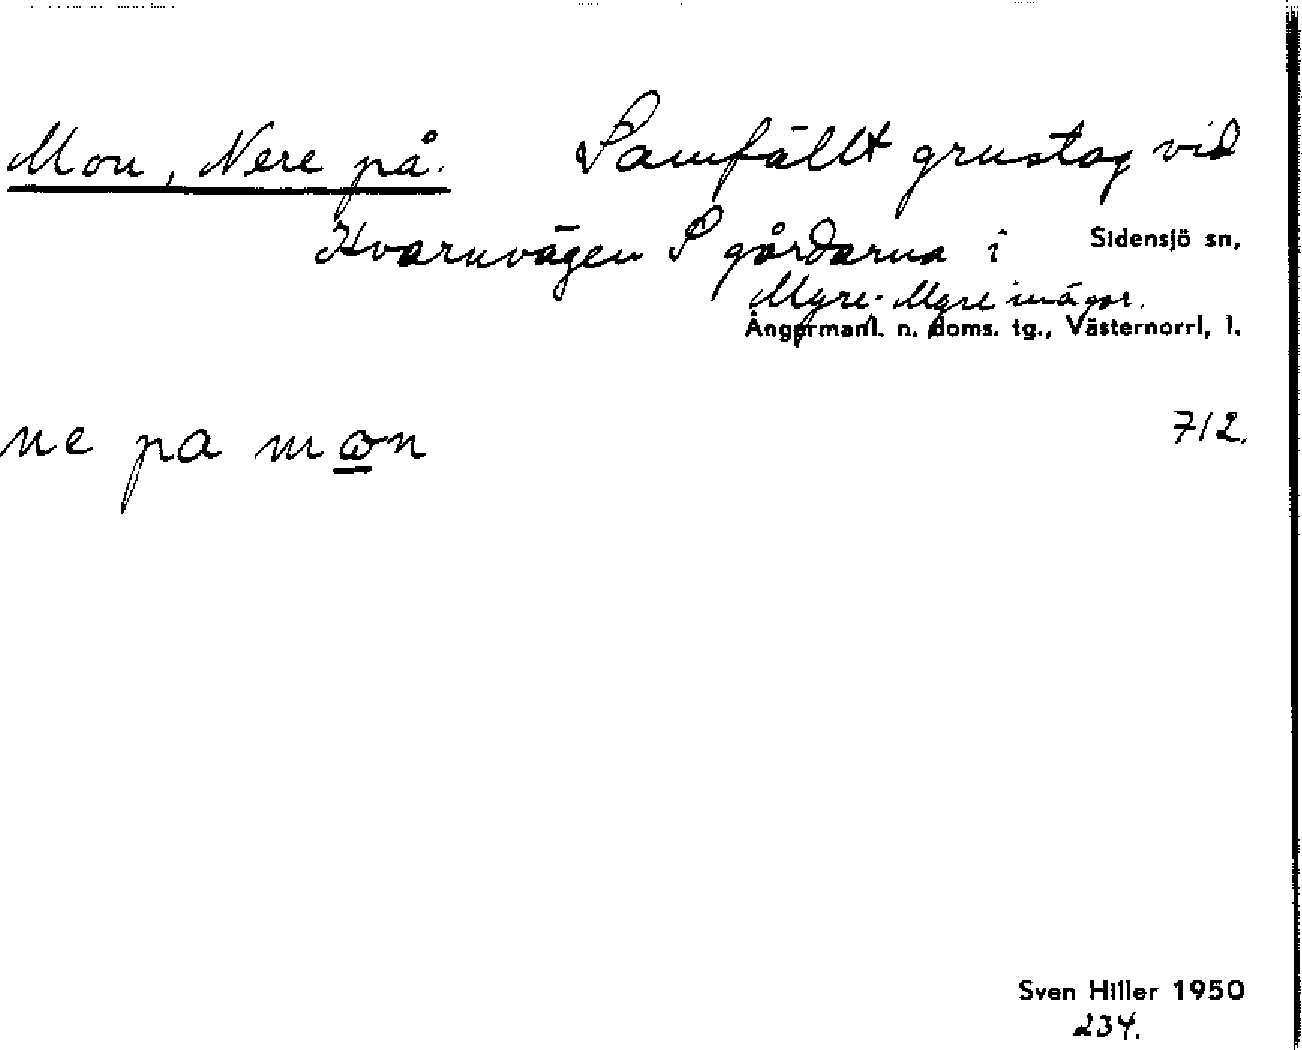 Mon, Nere på. Samfällt grustag vid
Kvarnvägen S gårdarna i Sidensjö sn,
Myre- Myre inägor.
Ångermanl. n. doms. tg., Västernorrl, l.
ne pa mɷn 712.
Sven Hiller 1950
234.